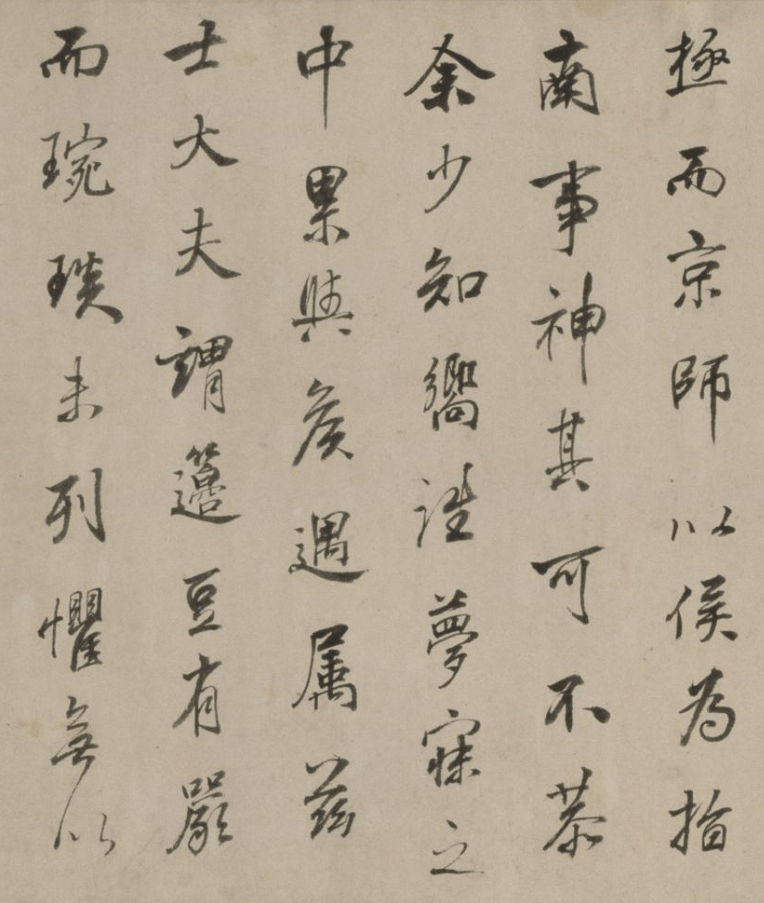 極而京師以侯為指
南事神其可不恭
余少知嚮往夢寐之
中累與侯遇属茲
士大夫謂籩豆有嚴
而琬琰未列懼無以